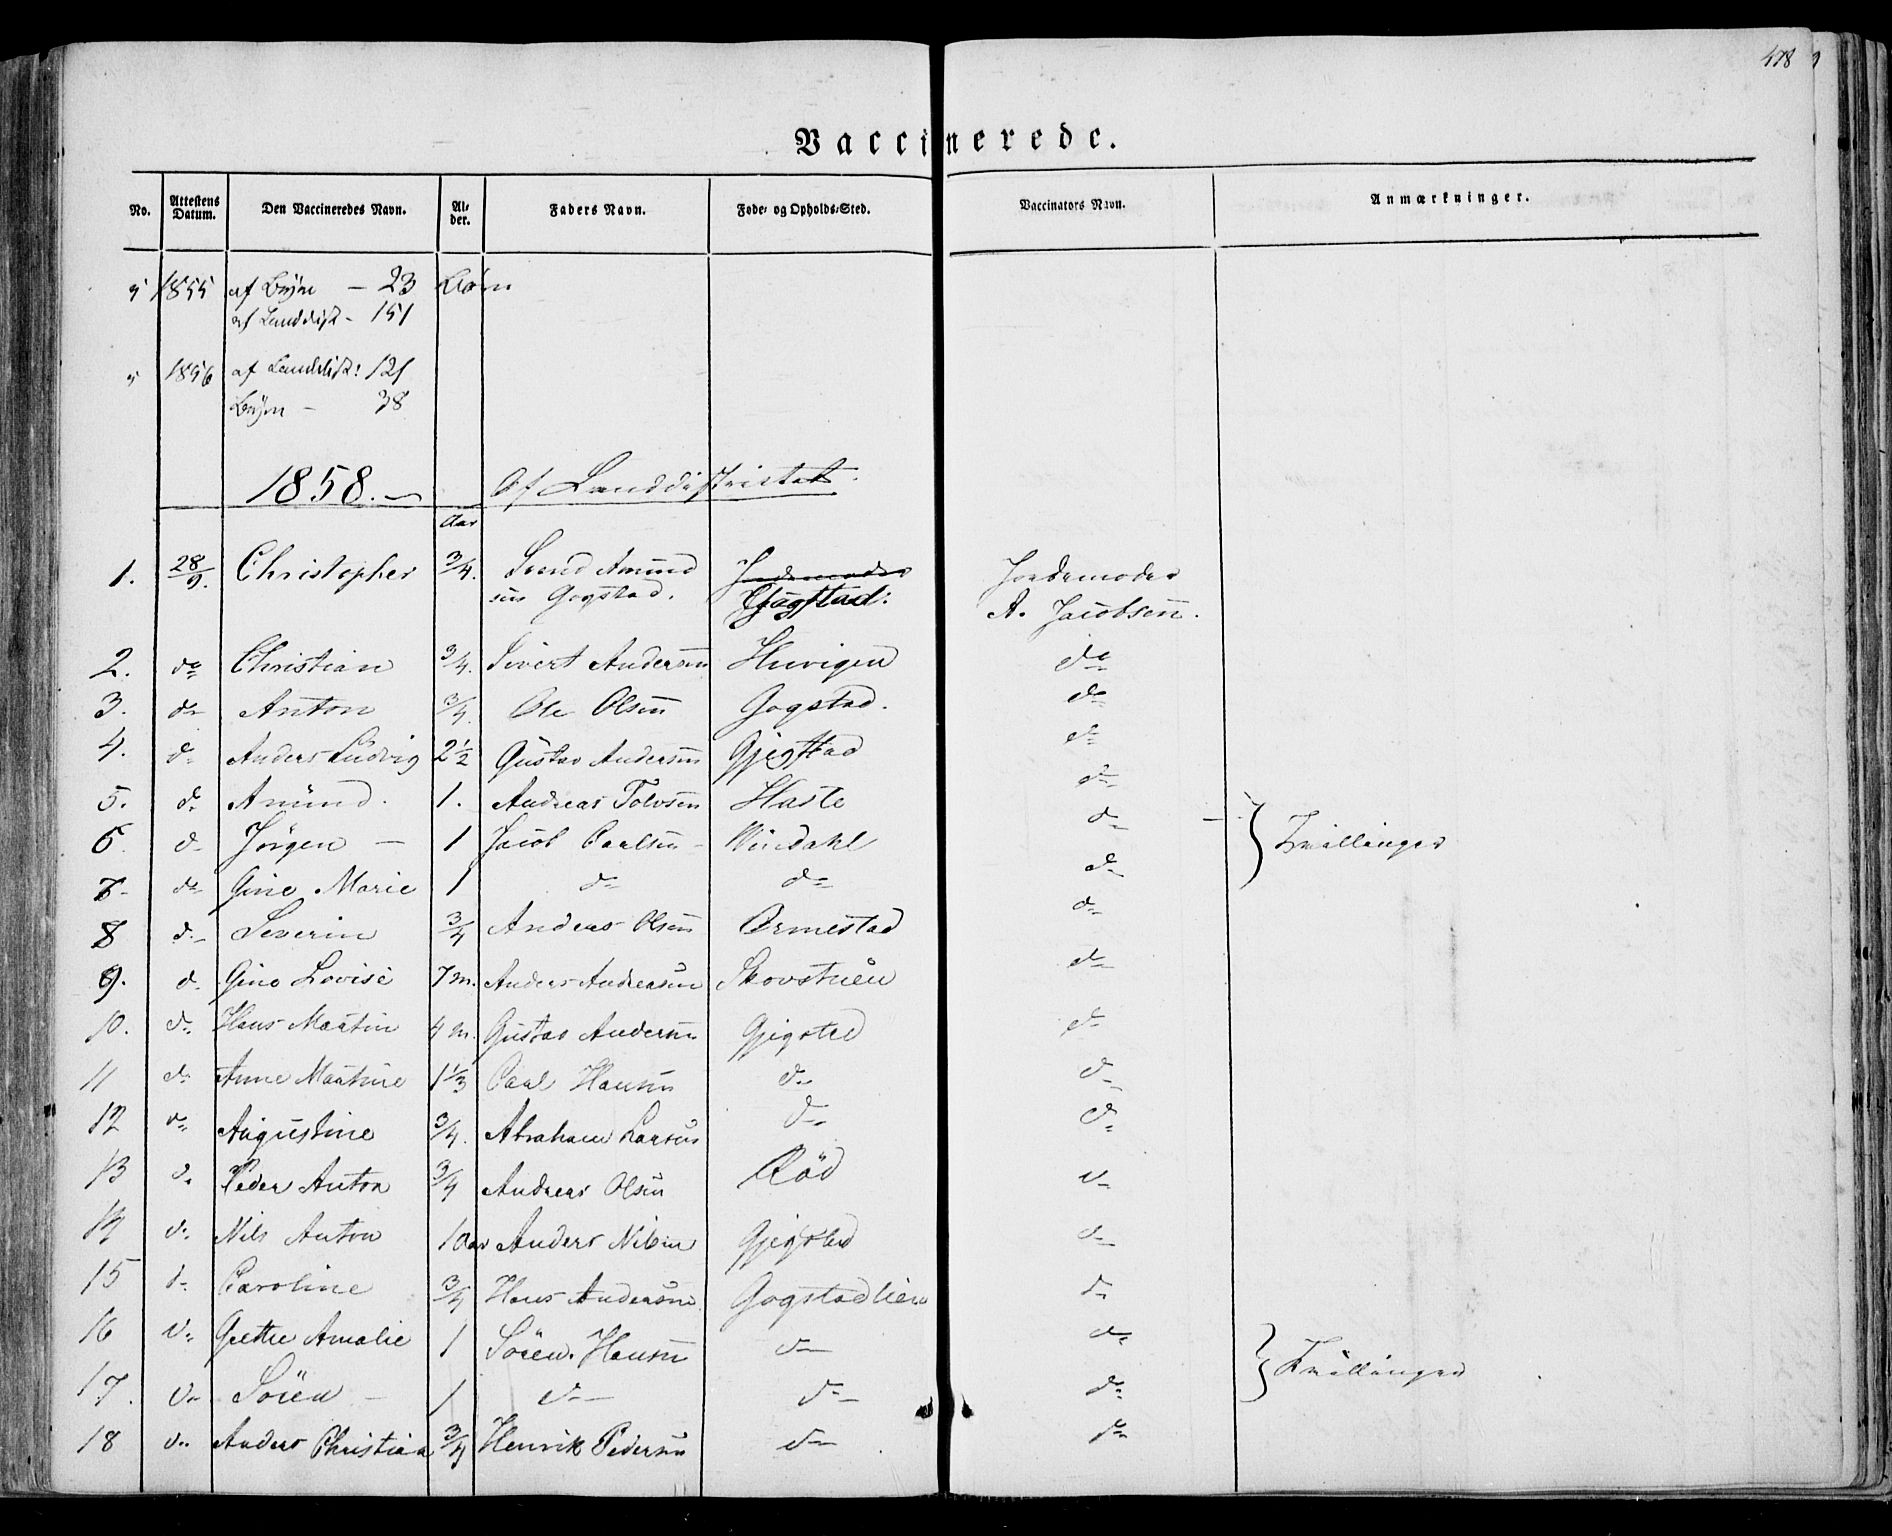 478
Vaccinerede.
No. Attestens Datum. Den Vaccineredes Navn. Alder. Faders Navn. Føde- og Opholds-Sted. Vaccinators Navn. Anmærkninger.
1855 af Byen — 23 Børn
af Landdist. - 151
1856 af Landdist: 121
Byen — 38
1858. — Af Landdistriktet.
Aar
1. 28/9. Christopher 3/4. Svend Amund Jordemoder Jordemoder
sen Gogstad. Gjugstad: A. Jacobsen.
2. do Christian 3/4. Sivert Andersen Huvigen do
3. do Anton 3/4. Ole Olsen Gogstad. do
4. do Anders Ludvig 2 1/2 Gustav Andersen Gjegstad do
5. do Amund. 1. Andreas Tolvsen Hasle do
6. do Jørgen — 1 Jacob Carlsen - Vindahl do } Tvillinger
7. do Gine Marie 1 do do do
8 do Severin 3/4 Andreas Olsen Ormestad do
9. do Gine Lovise 7 m. Anders Andreasen Skovstuen do
10. do Hans Martin 4 m. Gustav Andersen Gjigsted do
11 do Anne Martine 1 1/3 Carl Hansen do do
12 do Augustine 3/4. Abraham Larsen do do
13 do Peder Anton 3/4 Andreas Olsen Röd do
14 do Nils Anton 1 Aar Anders Nilsen Gjigsted do
15 do Caroline 3/4 Hans Andersen Gogstadlien do
16 do Grethe Amalie 1 Sören Hansen do do } Tvillinger
17. do Sören — 1 do do do
18 do Anders Christian 3/4 Henrik Pedersen do do